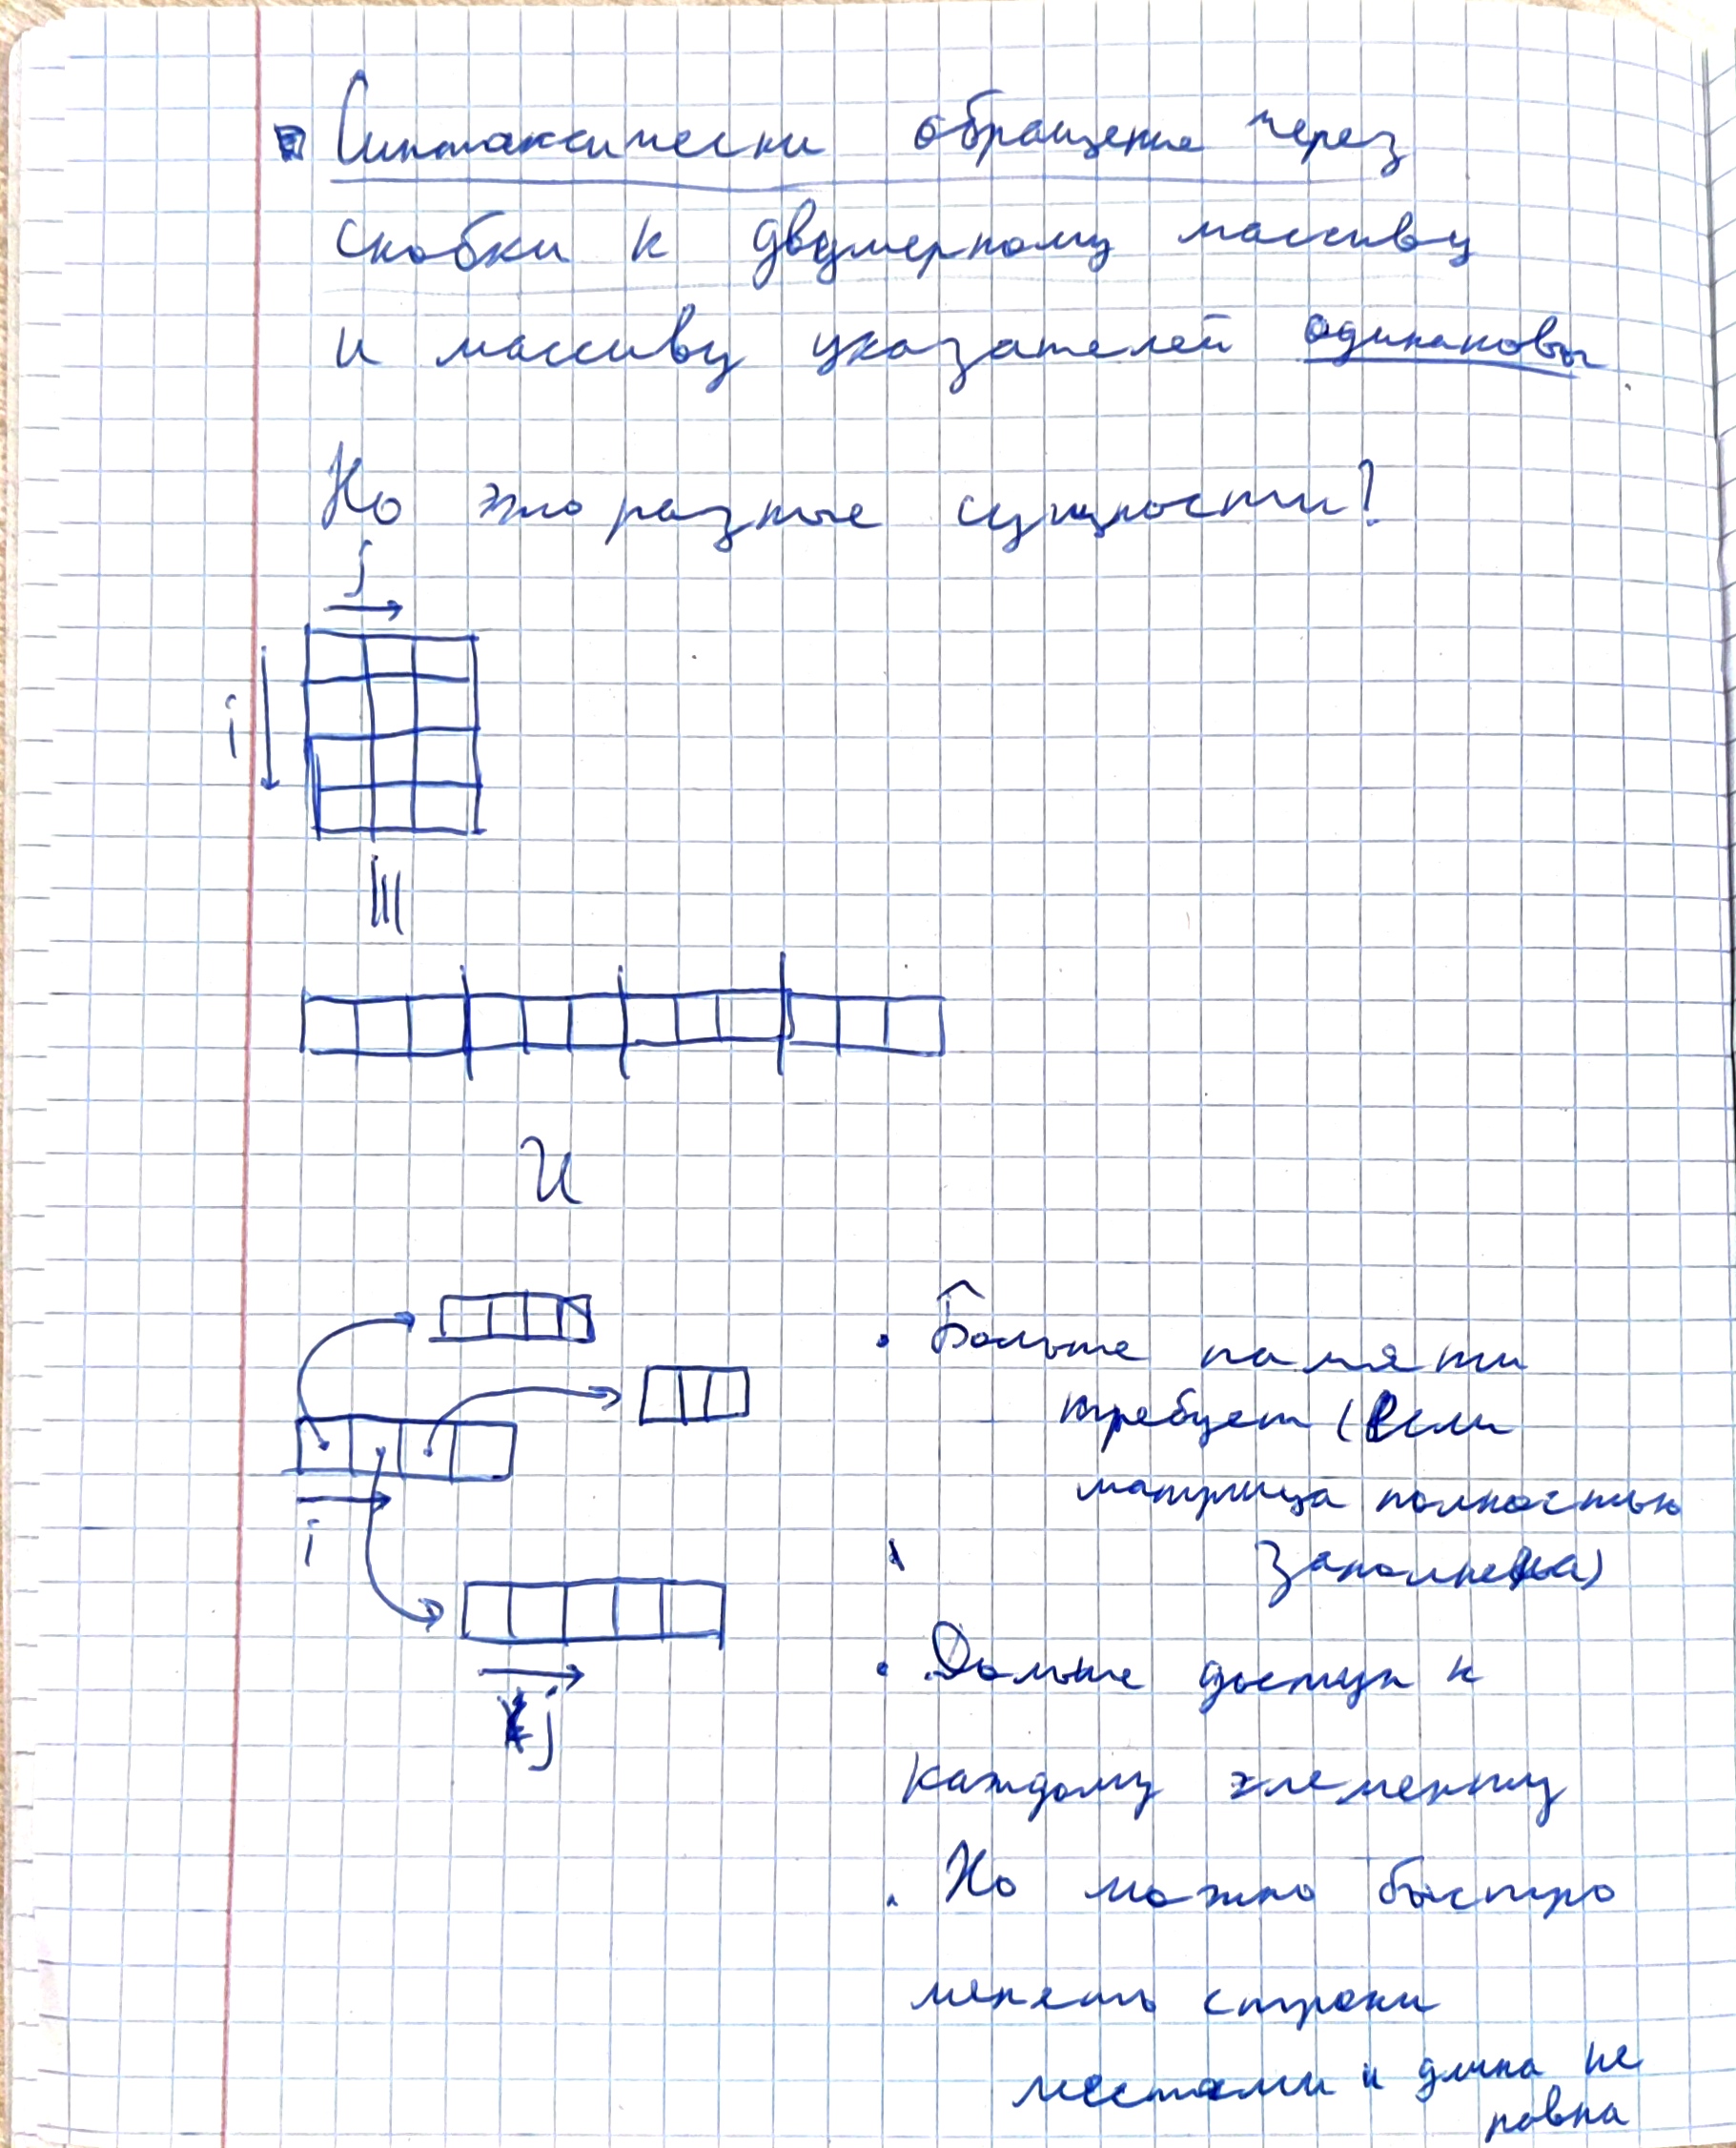 Синтаксически обращение через
скобки к двумерному массиву
и массиву указателей одинаковы.
Но это разные сущности!
j
i
и
• Больше памяти
требует (Если
матрица полностью
заполнена)
i
• Дольше доступ к
j
каждому элементу
• Но можно быстро
менять строки
местами и длина не
равна